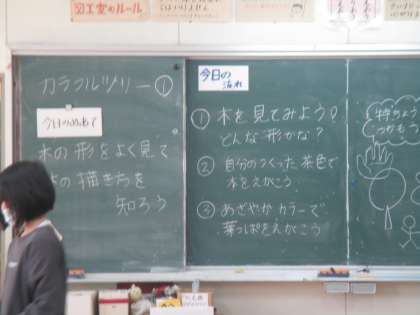 図工室のルール
カラフルツリー①
今日のめあて
木の形をよく見て
の描き方を
知ろう
今日の
流れ
① 木を見てみよう!
どんな形かな?
② 自分のつくった茶色で
木をえがこう。
③ あざやかカラーで
葉っぱをえがこう
特ちょう
つかもう